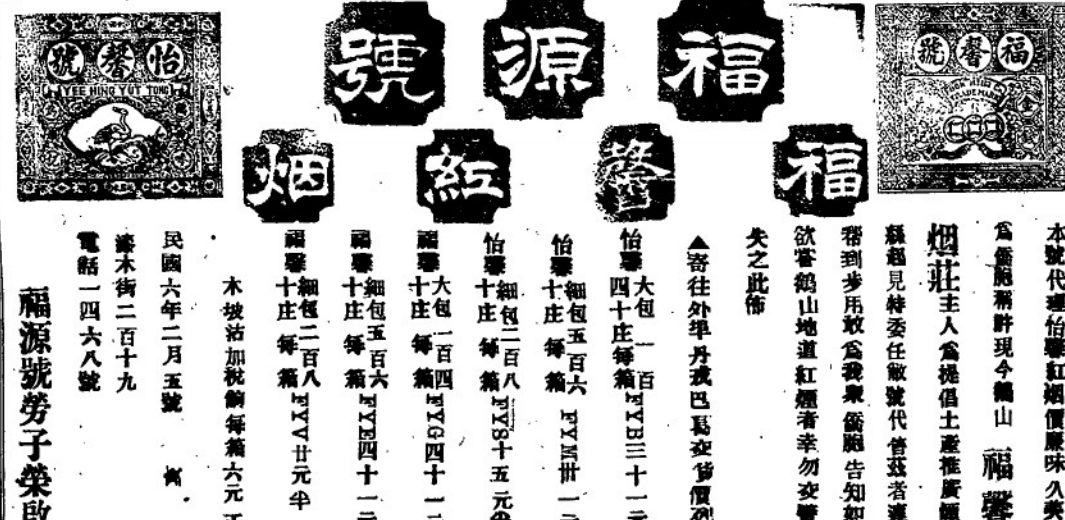 福源號
福馨紅烟
福馨號
怡馨號
YEE HING YUT TONG
本號代理怡馨紅烟價廉味久
為僑胞稱許現今鶴山 福馨
烟莊主人為提倡土產推廣
起見特委任敝號代售茲者
到步用敢為我眾僑胞告知
欲嘗鶴山地道紅煙者幸勿交
失之此佈
▲寄往外埠丹戎巴葛交貨價列
怡馨 大包一百四十庄每箱FYB三十一元
怡馨 細包五百六十庄每箱FYM卅一
怡馨 細包二百八十庄每箱FYS十五元
福馨 大包一百四十庄每箱FYG四十一
福馨 細包五百六十庄每箱FYE四十一
福馨 細包二百八十庄每箱FYV廿元半
木坡沽加稅餉每箱六元
民國六年二月五號
漆木街二百十九
電話一四六八號
福源號勞子榮啟